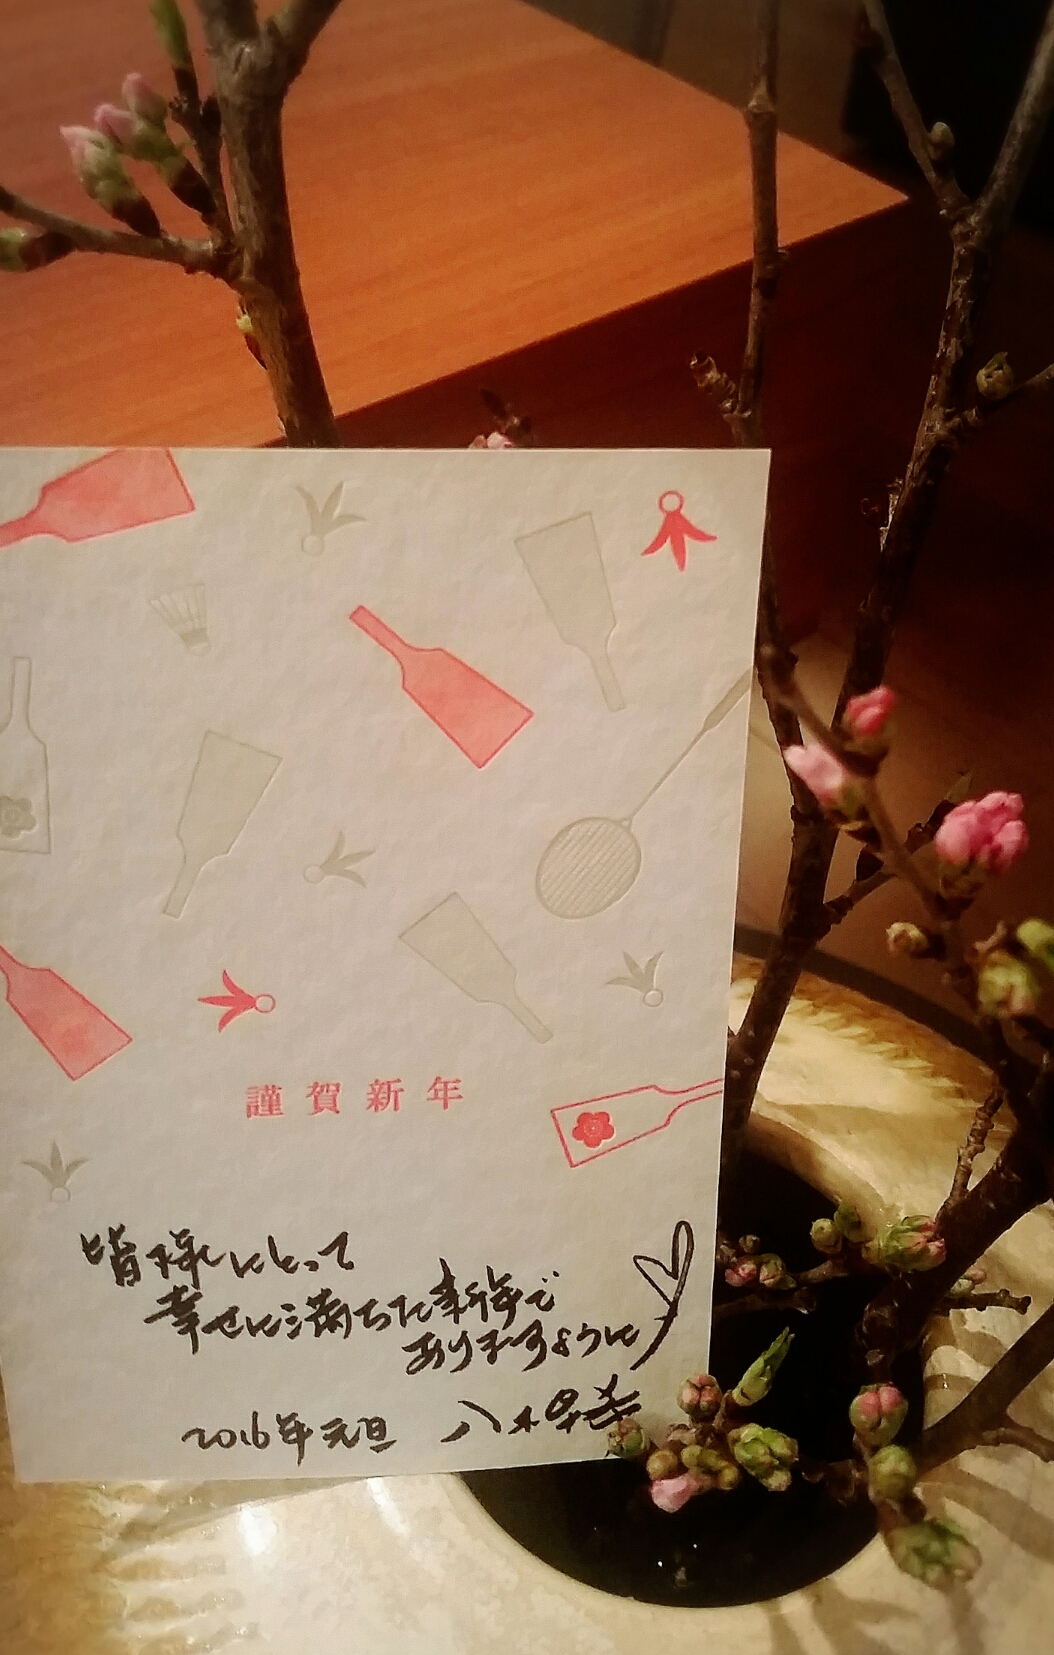 謹賀新年
皆様にとって
幸せに満ちた新年で
ありますように
2016年元旦 八木